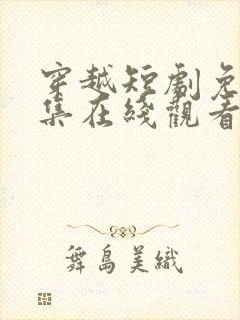 穿越短劇免
集在綫觀看
舞島美織